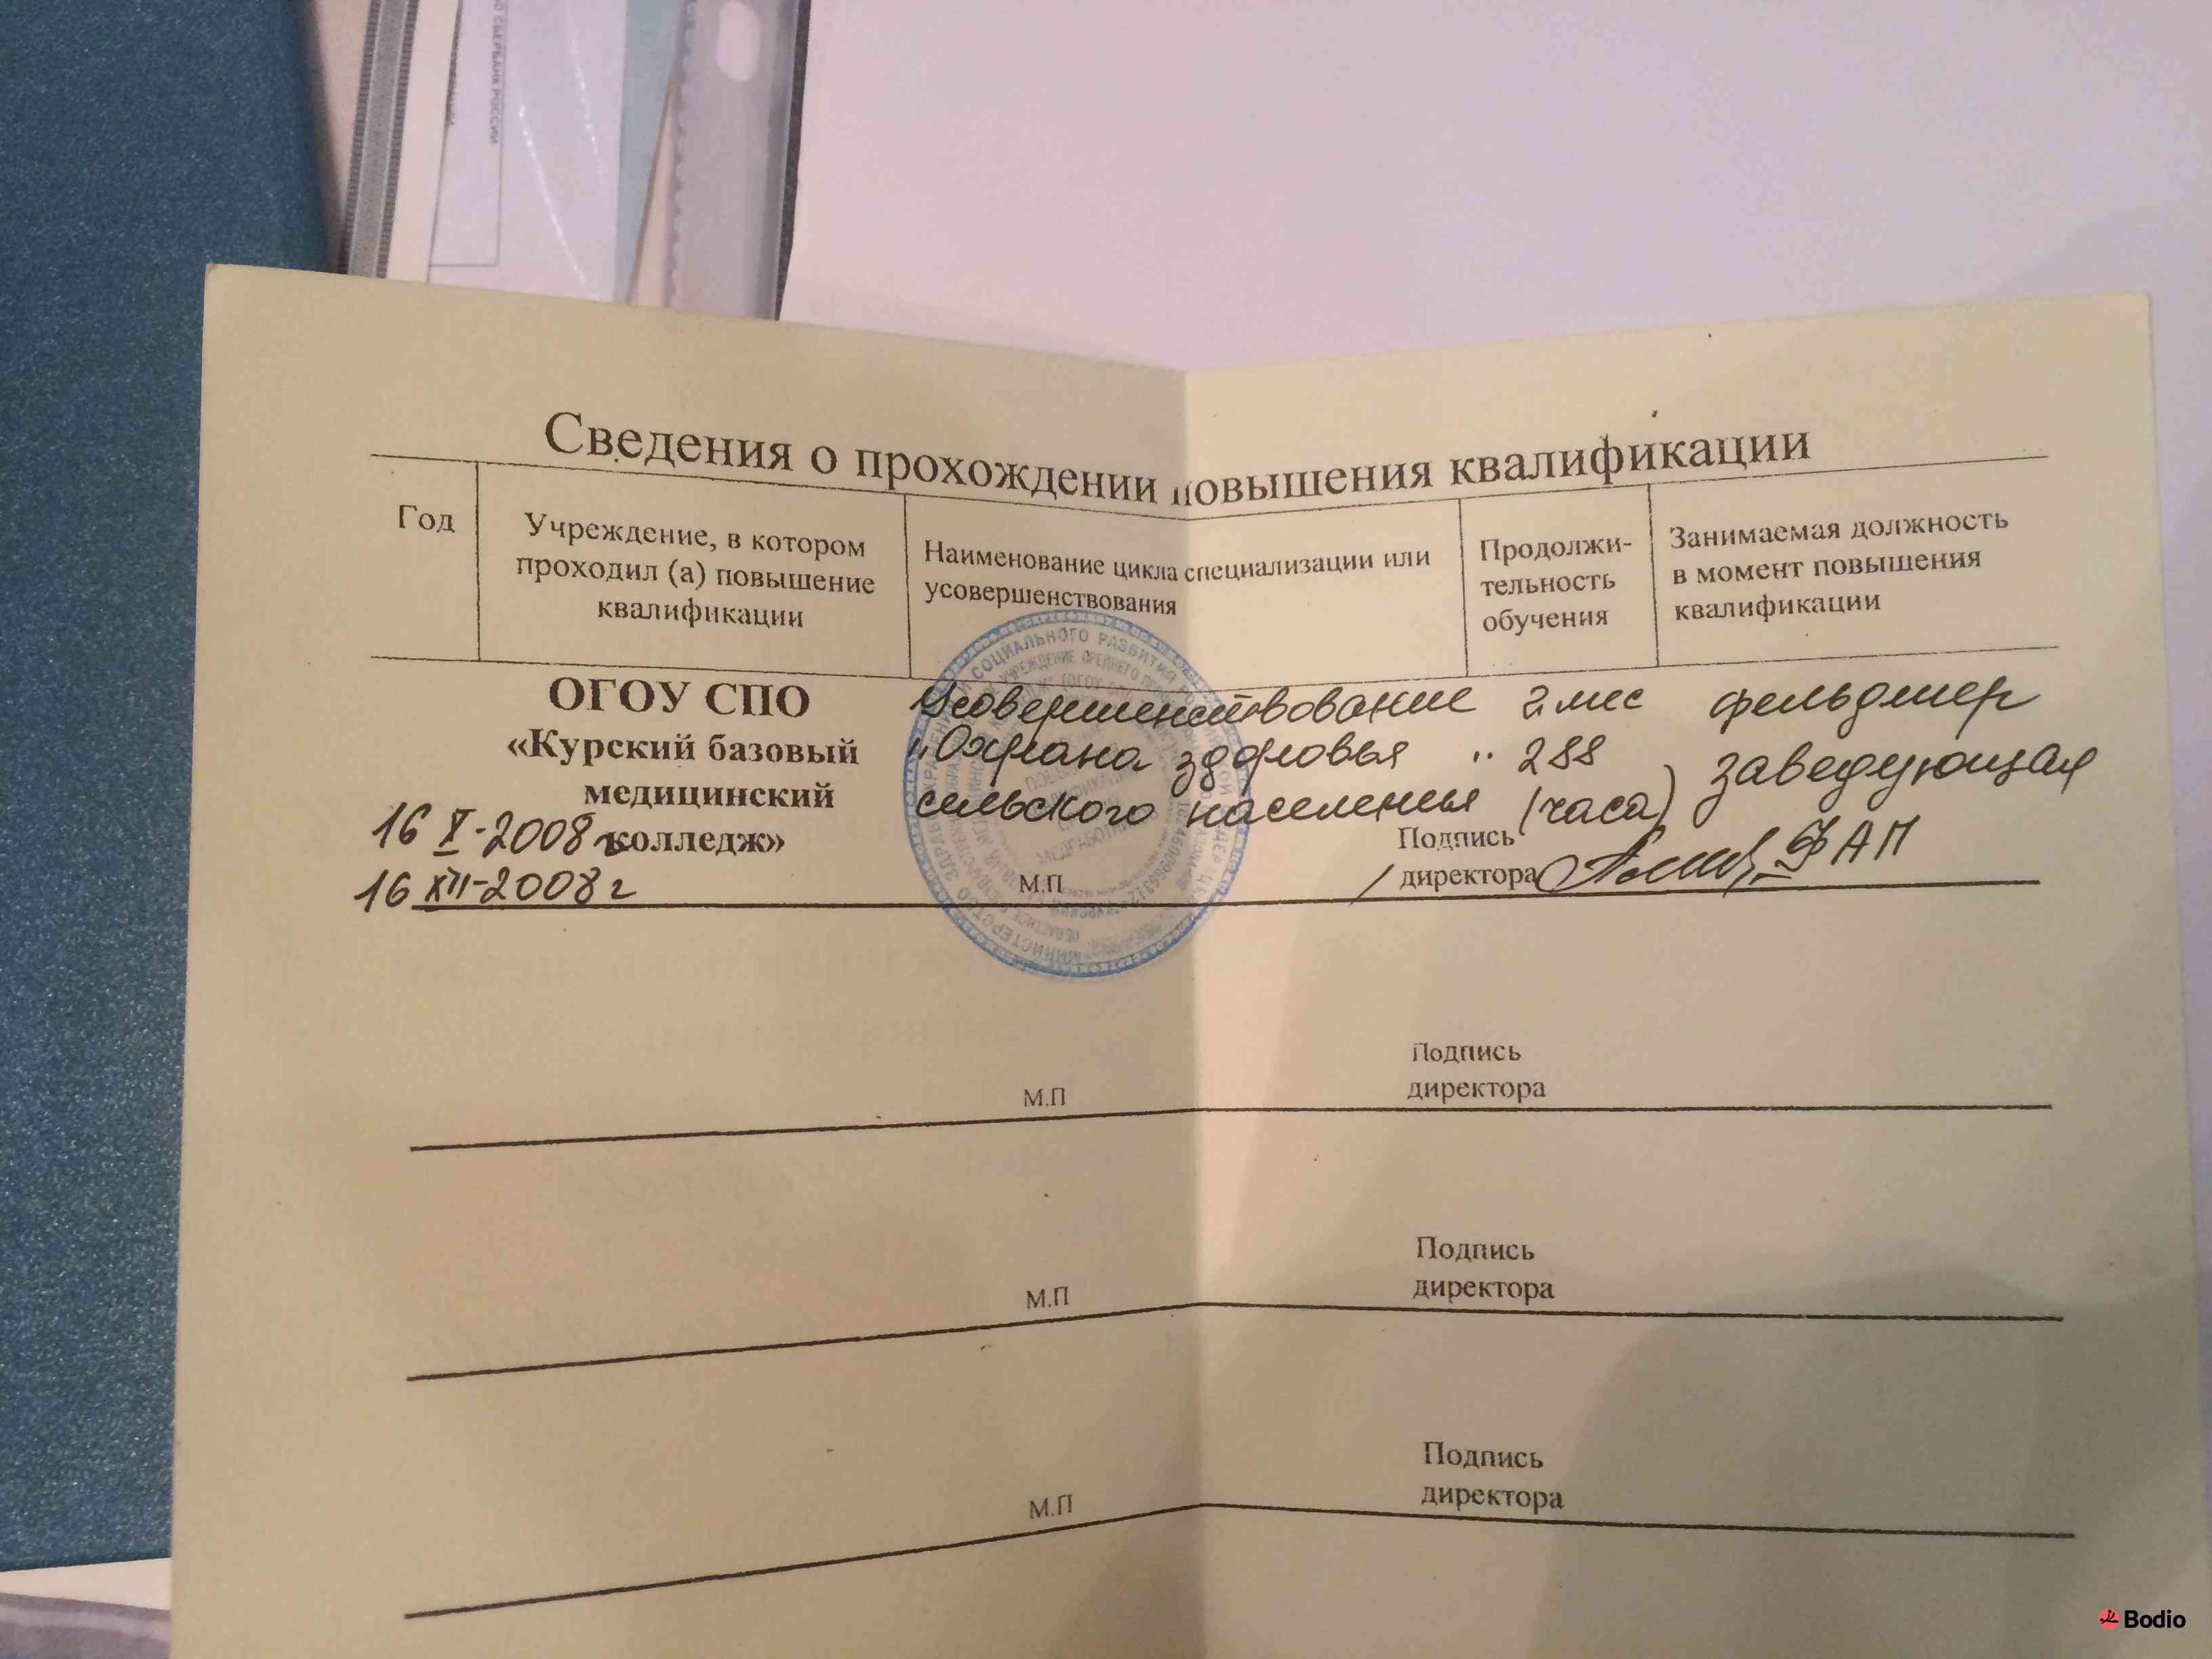 СБЕРБАНК РОССИИ
Сведения о прохождении повышения квалификации
Год
Учреждение, в котором
проходил (а) повышение
квалификации
Наименование цикла специализации или
усовершенствования
Продолжи-
тельность
обучения
Занимаемая должность
в момент повышения
квалификации
ОГОУ СПО
«Курский базовый
медицинский
колледж»
16 X-2008 г
16 XII-2008 г
Усовершенствование
"Охрана здоровья "
сельского населенья
2 мес
288
(часа)
фельдшер
заведующая
ФАП
М.П
Подпись
директора
М.П
Подпись
директора
М.П
Подпись
директора
М.П
Подпись
директора
Bodio